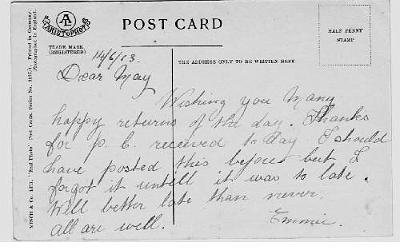 ARISTOPHOT
TRADE MARK
(REGISTERED)
POST CARD
HALF PENNY
STAMP
THE ADDRESS ONLY TO BE WRITTEN HERE
Printed in Germany.
Photographed in England.
14/6/13.
Dear May
Wishing you Many
happy returns of the day. Thanks
for p. c. received to day I should
have posted this before but I
forgot it untill it was to late.
Well better late than never.
all are well. Emmie.